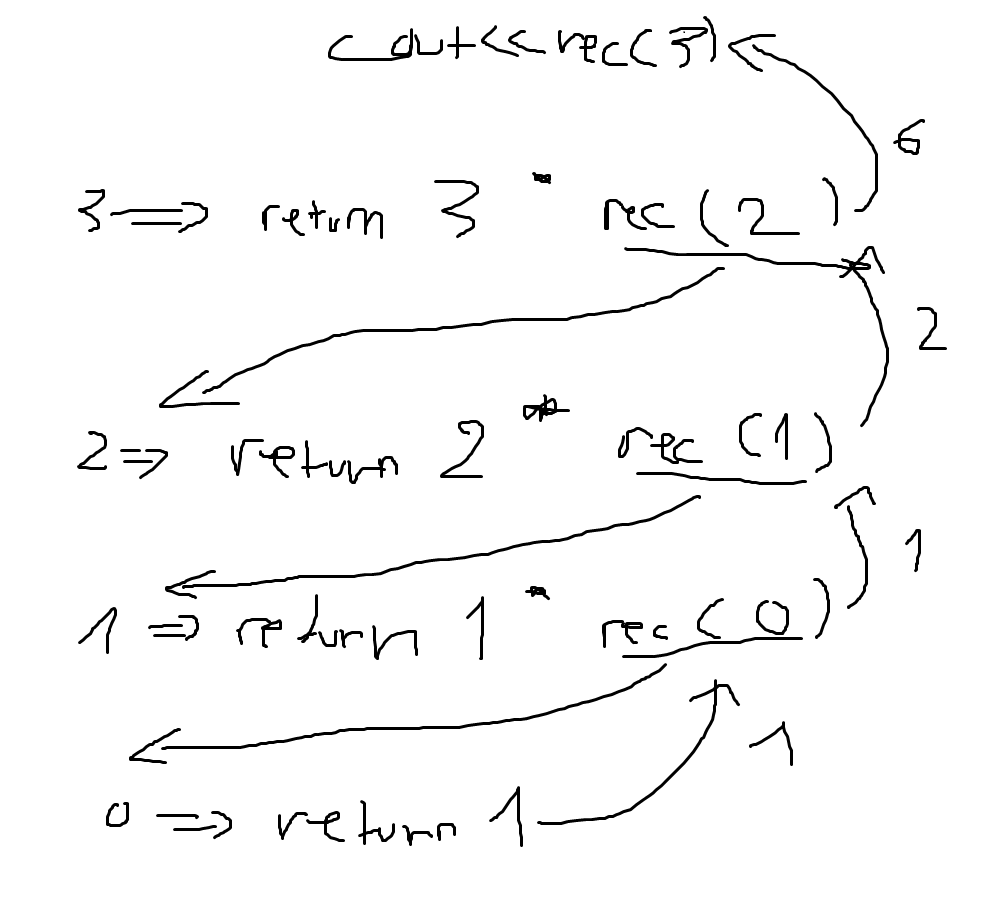 cout<<rec(3)
6
3=> return 3 * rec(2)
2
2=> return 2 * rec(1)
1
1=> return 1 * rec(0)
1
0=> return 1